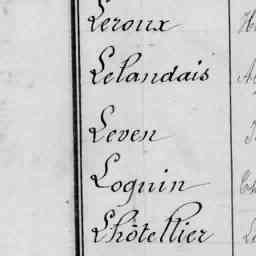 Leroux
Lelandais
Leven
Loguin
Lhôtellier